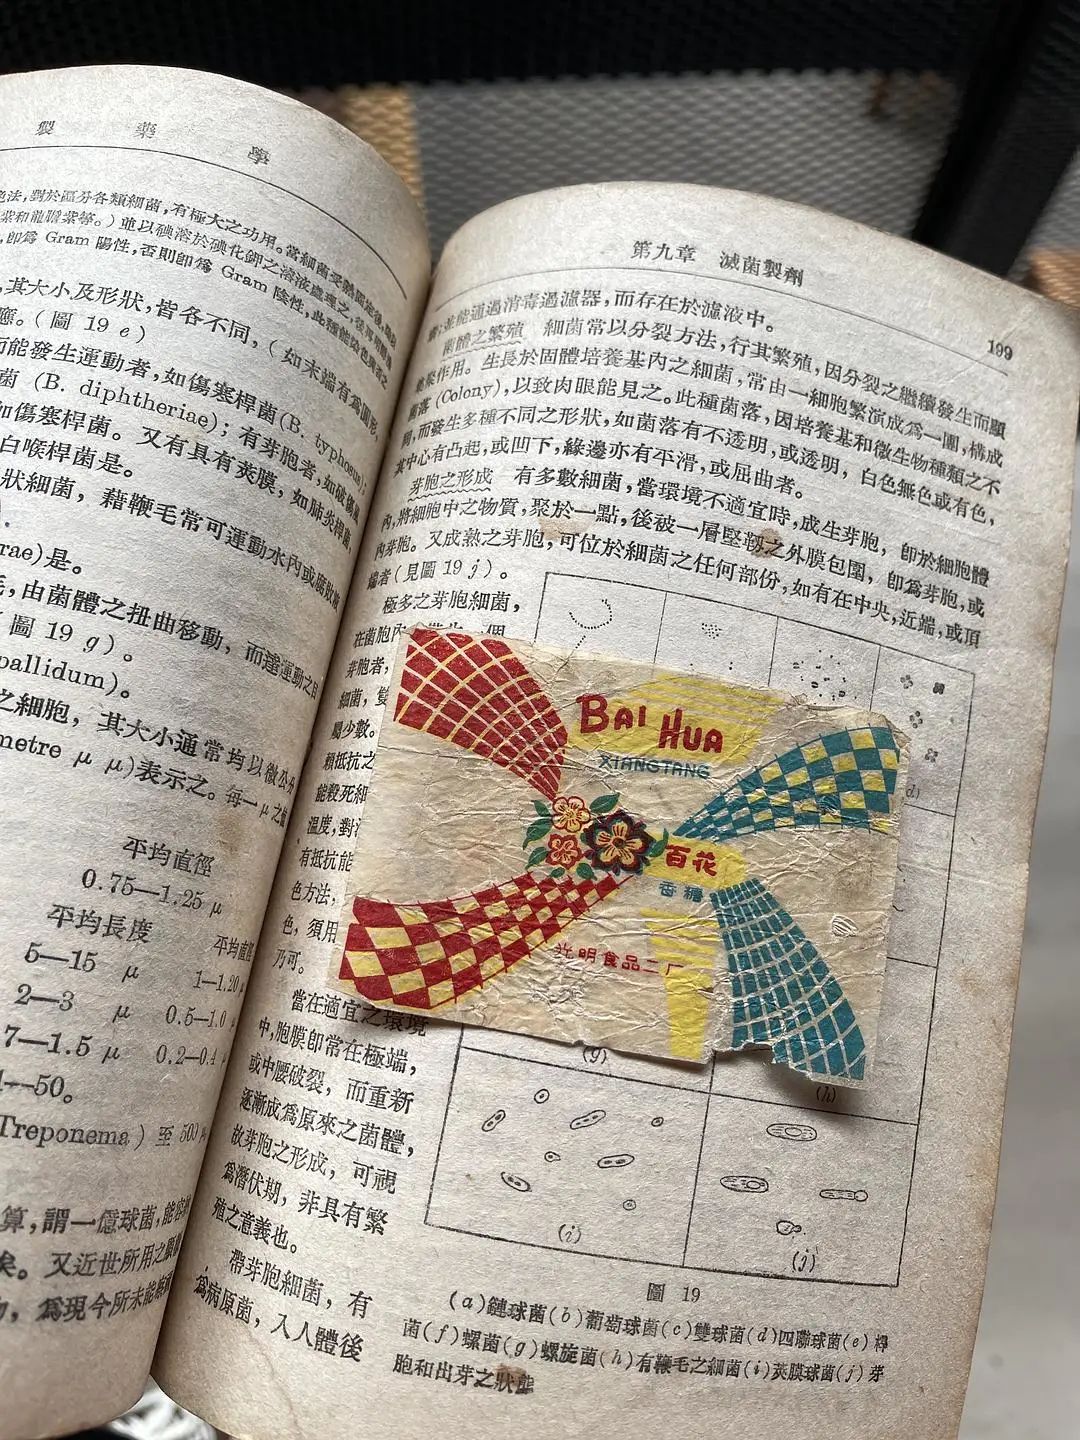 製藥學
法,對於區分各類細菌,有極大之功用。當細菌受
紫和龍膽紫等。)並以碘溶於碘化鉀之溶液處理之,
卽爲 Gram 陽性,否則卽爲 Gram 陰性,此種能染色
,其大小及形狀,皆各不同,(如末端有爲圓形,
應。(圖 19 e)
而能發生運動者,如傷寒桿菌(B. typhosus);
菌 (B. diphtheriae);有芽胞者,如破傷風
如傷寒桿菌。又有具有莢膜,如肺炎桿菌,
白喉桿菌是。
狀細菌,藉鞭毛常可運動水內或腐敗
rae)是。
,由菌體之扭曲移動,而達運動之目
圖 19 g)。
pallidum)。
之細胞,其大小通常均以微公分
metre μ μ)表示之。每一μ之值
平均直徑
0.75—1.25 μ
平均長度 平均直徑
5—15 μ 1—1.20
2—3 μ 0.5—1.0
7—1.5 μ 0.2—0.4 μ
—50。
Treponema)至 500
算,謂一億球菌,能容
矣。又近世所用之顯
,爲現今所未能
第九章 滅菌製劑 199
並能通過消毒過濾器,而存在於濾液中。
菌體之繁殖 細菌常以分裂方法,行其繁殖,因分裂之繼續發生而顯
作用。生長於固體培養基內之細菌,常由一細胞繁演成爲一團,構成
菌落 (Colony),以致肉眼能見之。此種菌落,因培養基和微生物種類之不
同,而發生多種不同之形狀,如菌落有不透明,或透明,白色無色或有色,
其中心有凸起,或凹下,緣邊亦有平滑,或屈曲者。
芽胞之形成 有多數細菌,當環境不適宜時,成生芽胞,卽於細胞體
內,將細胞中之物質,聚於一點,後被一層堅韌之外膜包圍,卽爲芽胞,或
內芽胞。又成熟之芽胞,可位於細菌之任何部份,如有在中央,近端,或頂
端者(見圖 19 j)。
極多之芽胞細菌,
在菌胞內
芽胞者,
細菌,
屬少數。
類抵抗之
能殺死細
溫度,對
有抵抗能
色方法,
色,須用
乃可。
當在適宜之環境
中,胞膜卽常在極端,
或中腰破裂,而重新
逐漸成爲原來之菌體,
故芽胞之形成,可視
爲潛伏期,非具有繁
殖之意義也。
帶芽胞細菌,有
爲病原菌,入人體後
BAI HUA
XIANGTANG
百花
香糖
光明食品二厂
d)
(g)
(h)
(i)
(j)
圖 19
(a)鏈球菌(b)葡萄球菌(c)雙球菌(d)四聯球菌(e)桿
菌(f)螺菌(g)螺旋菌(h)有鞭毛之細菌(i)莢膜球菌(j)芽
胞和出芽之狀態